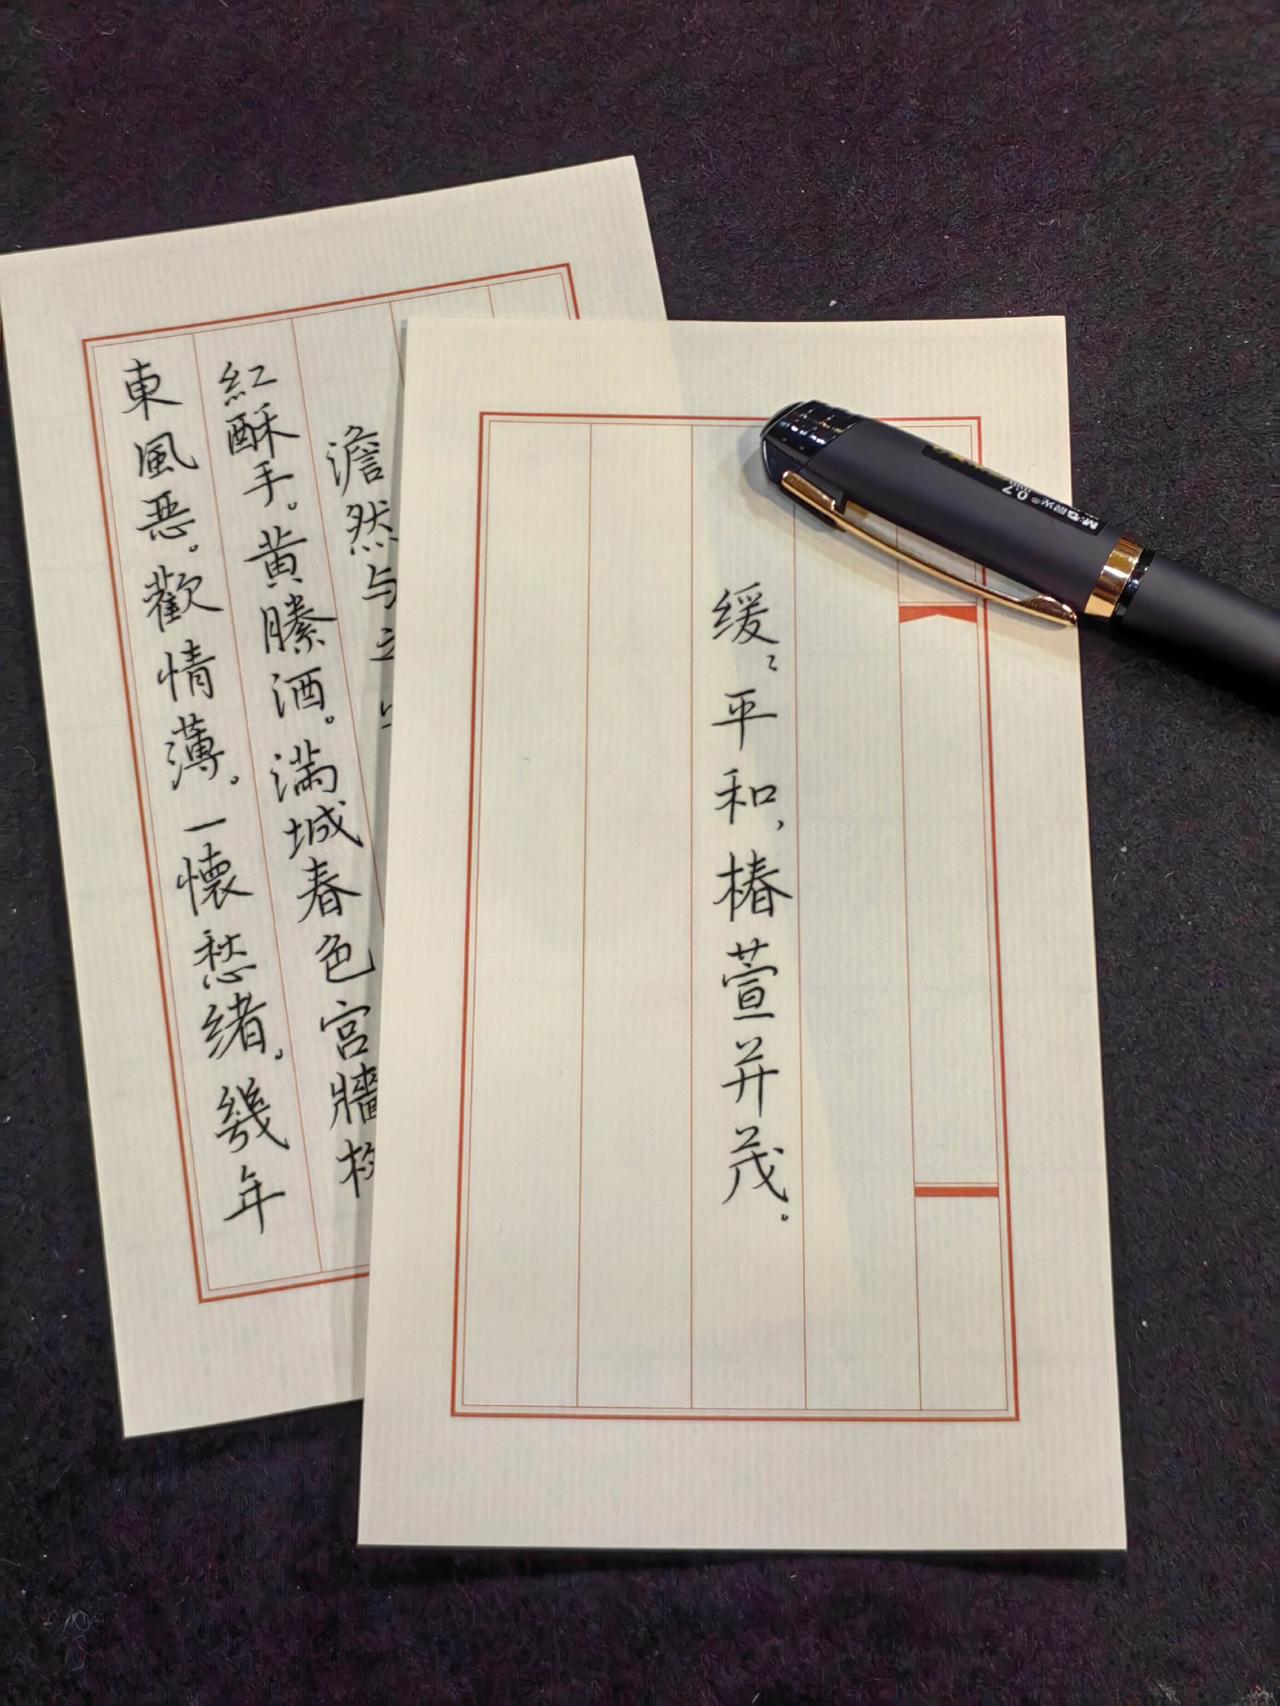 缓〻平和，椿萱并茂。
澹然与
紅酥手。黄縢酒。滿城春色宮牆
東風恶。歡情薄。一懷愁緒。幾年
M&G晨光 0.7